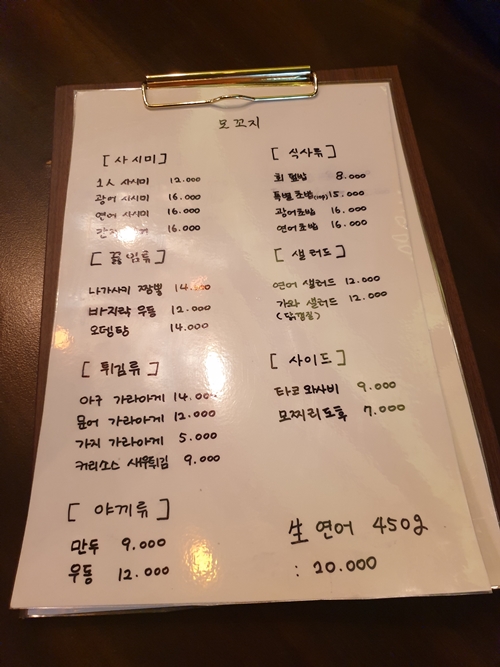 모꼬지
[사시미]
1人 사시미 12.000
광어 사시미 16.000
연어 사시미 16.000
16.000
[끓임류]
나가사키 짬뽕 14.000
바지락 우동 12.000
오뎅탕 14.000
[튀김류]
아구 가라아게 14.000
문어 가라아게 12.000
가지 가라아게 5.000
커리소스 새우튀김 9.000
[야끼류]
만두 9.000
우동 12.000
[식사류]
회 덮밥 8.000
특별 초밥 15.000
광어초밥 16.000
연어초밥 16.000
[샐러드]
연어 샐러드 12.000
가와 샐러드 12.000
(닭껍질)
[사이드]
타코 와사비 9.000
모찌리도후 7.000
生 연어 450g
: 20.000